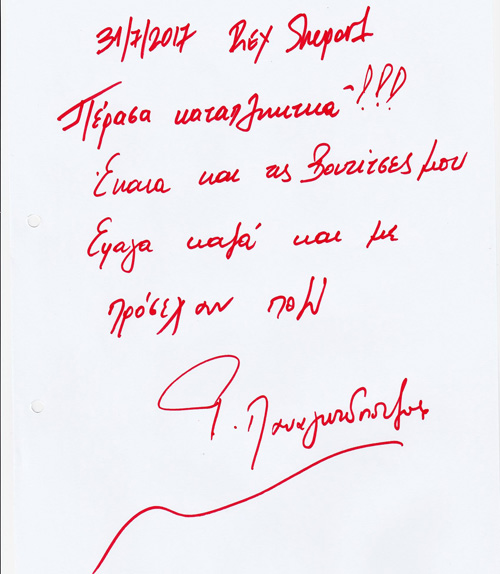 31/7/2017 Rex Shepard
Πέρασα καταπληκτικά !!!
Έκανα και τις βουτίτσες μου
Έφαγα καλά και με
πρόσεχαν πολύ
Παναγιωτόπουλος